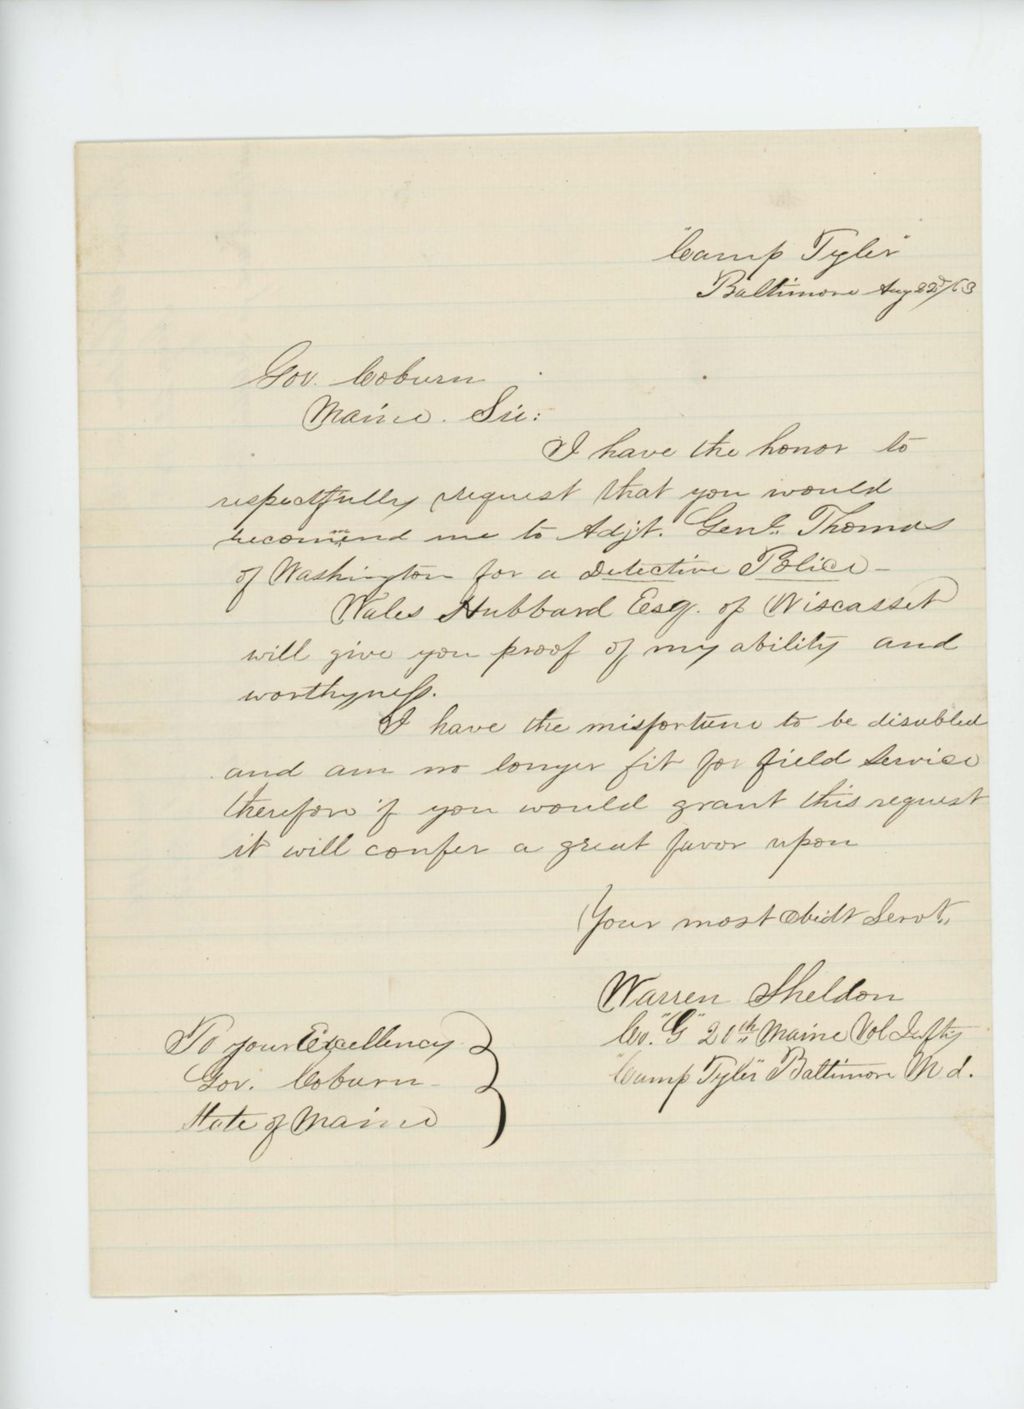 "Camp Tyler"
Baltimore Aug 22d/63
Gov. Coburn
Maine. Sir:
I have the honor to
respectfully request that you would
recommend me to Adjt. Genl. Thomas
of Washington for a Detective Police -
Wales Hubbard Esq. of Wiscasset
will give you proof of my ability and
worthyness.
I have the misfortune to be disabled
and am no longer fit for field service
therefore if you would grant this request
it will confer a great favor upon
Your most obidt Servt.,
Warren Sheldon
Co. "G" 20th Maine Vol Infty
"Camp Tyler" Baltimore Md.
To your Excellency
Gov. Coburn -
State of Maine